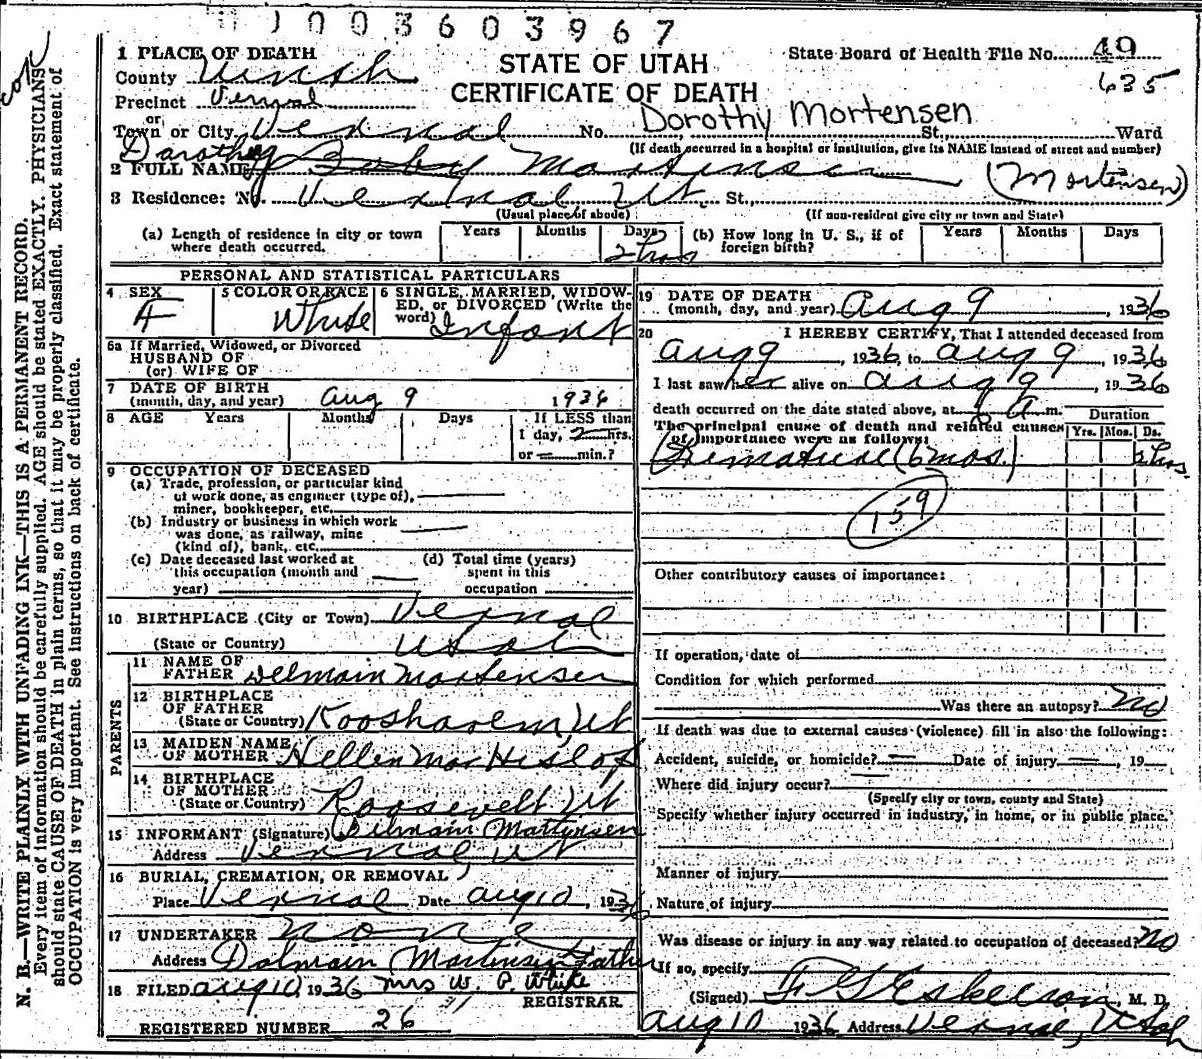 1003603967
STATE OF UTAH
CERTIFICATE OF DEATH
State Board of Health File No. 49
635
1 PLACE OF DEATH
County Uintah
Precinct Vernal
or
Town or City Vernal No. St., Ward
Dorothy Mortensen
(If death occurred in a hospital or institution, give its NAME instead of street and number)
2 FULL NAME Dorothy Baby Martinsen (Mortensen)
3 Residence: No. Vernal, Ut. St.,
(Usual place of abode) (If non-resident give city or town and State)
(a) Length of residence in city or town where death occurred. Years Months Days 2 hrs
(b) How long in U. S., if of foreign birth? Years Months Days
PERSONAL AND STATISTICAL PARTICULARS
4 SEX F
5 COLOR OR RACE White
6 SINGLE, MARRIED, WIDOWED, or DIVORCED (Write the word) Infant
6a If Married, Widowed, or Divorced
HUSBAND OF
(or) WIFE OF
7 DATE OF BIRTH
(month, day, and year) Aug 9 1936
8 AGE Years Months Days If LESS than
1 day, 2 hrs.
or — min.?
9 OCCUPATION OF DECEASED
(a) Trade, profession, or particular kind
of work done, as engineer (type of),
miner, bookkeeper, etc.
(b) Industry or business in which work
was done, as railway, mine
(kind of), bank, etc.
(c) Date deceased last worked at
this occupation (month and
year)
(d) Total time (years)
spent in this
occupation
10 BIRTHPLACE (City or Town) Vernal
(State or Country) Utah
PARENTS
11 NAME OF
FATHER Delmain Mortensen
12 BIRTHPLACE
OF FATHER
(State or Country) Koosharem, Ut
13 MAIDEN NAME
OF MOTHER Hellen Mae Hislop
14 BIRTHPLACE
OF MOTHER
(State or Country) Roosevelt Ut
15 INFORMANT (Signature) Delmain Martinsen
Address Vernal, Ut
16 BURIAL, CREMATION, OR REMOVAL
Place Vernal Date Aug 10, 1936
17 UNDERTAKER none
Address Dolmain Martinsen Father
18 FILED Aug 10, 1936 Mrs W. P. White
REGISTRAR.
REGISTERED NUMBER 26
19 DATE OF DEATH
(month, day, and year) Aug 9 1936
20 I HEREBY CERTIFY, That I attended deceased from
Aug 9, 1936, to Aug 9, 1936
I last saw her alive on Aug 9, 1936
death occurred on the date stated above, at 9 a m.
The principal cause of death and related causes
of importance were as follows:
Duration
Yrs. Mos. Ds.
Premature (6 mos.) 2 hrs
159
Other contributory causes of importance:
If operation, date of
Condition for which performed
Was there an autopsy? No
If death was due to external causes (violence) fill in also the following:
Accident, suicide, or homicide? — Date of injury —, 19
Where did injury occur? —
(Specify city or town, county and State)
Specify whether injury occurred in industry, in home, or in public place.
Manner of injury
Nature of injury
Was disease or injury in any way related to occupation of deceased? No
If so, specify
(Signed) F G Eskelson, M. D.
Aug 10 1936 Address Vernal, Utah
N. B.—WRITE PLAINLY WITH UNFADING INK—THIS IS A PERMANENT RECORD.
Every item of information should be carefully supplied. AGE should be stated EXACTLY. PHYSICIANS
should state CAUSE OF DEATH in plain terms, so that it may be properly classified. Exact statement of
OCCUPATION is very important. See instructions on back of certificate.